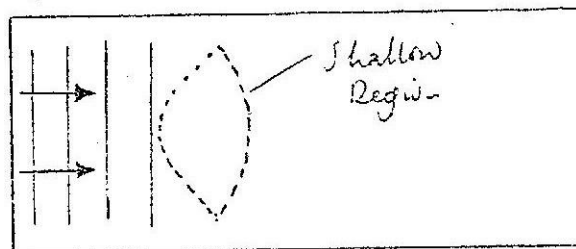 Shallow
Region